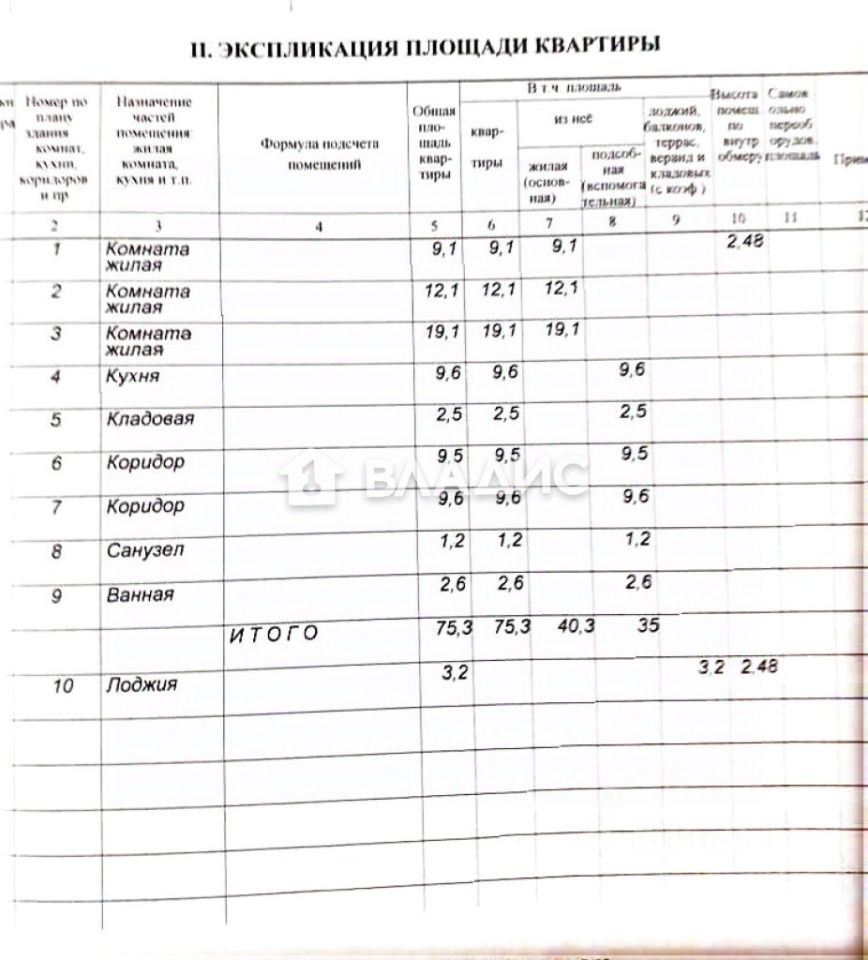 II. ЭКСПЛИКАЦИЯ ПЛОЩАДИ КВАРТИРЫ
Номер по плану здания комнат, кухни, коридоров и пр
Назначение частей помещения: жилая комната, кухня и т.п.
Формула подсчета помещений
Общая пло-щаль квар-тиры
В т.ч. площаль
квар-тиры
из неё
жилая (основ-ная)
подсоб-ная (вспомога тельная)
лоджий, балконов, террас, веранд и кладовых (с коэф.)
Высота помещ. по внутр обмеру
Самов ольно переоб орудов. площаль
2 3 4 5 6 7 8 9 10 11 12
1 Комната жилая 9,1 9,1 9,1 2,48
2 Комната жилая 12,1 12,1 12,1
3 Комната жилая 19,1 19,1 19,1
4 Кухня 9,6 9,6 9,6
5 Кладовая 2,5 2,5 2,5
6 Коридор 9,5 9,5 9,5
7 Коридор 9,6 9,6 9,6
8 Санузел 1,2 1,2 1,2
9 Ванная 2,6 2,6 2,6
ИТОГО 75,3 75,3 40,3 35
10 Лоджия 3,2 3,2 2,48
ВЛАДИС